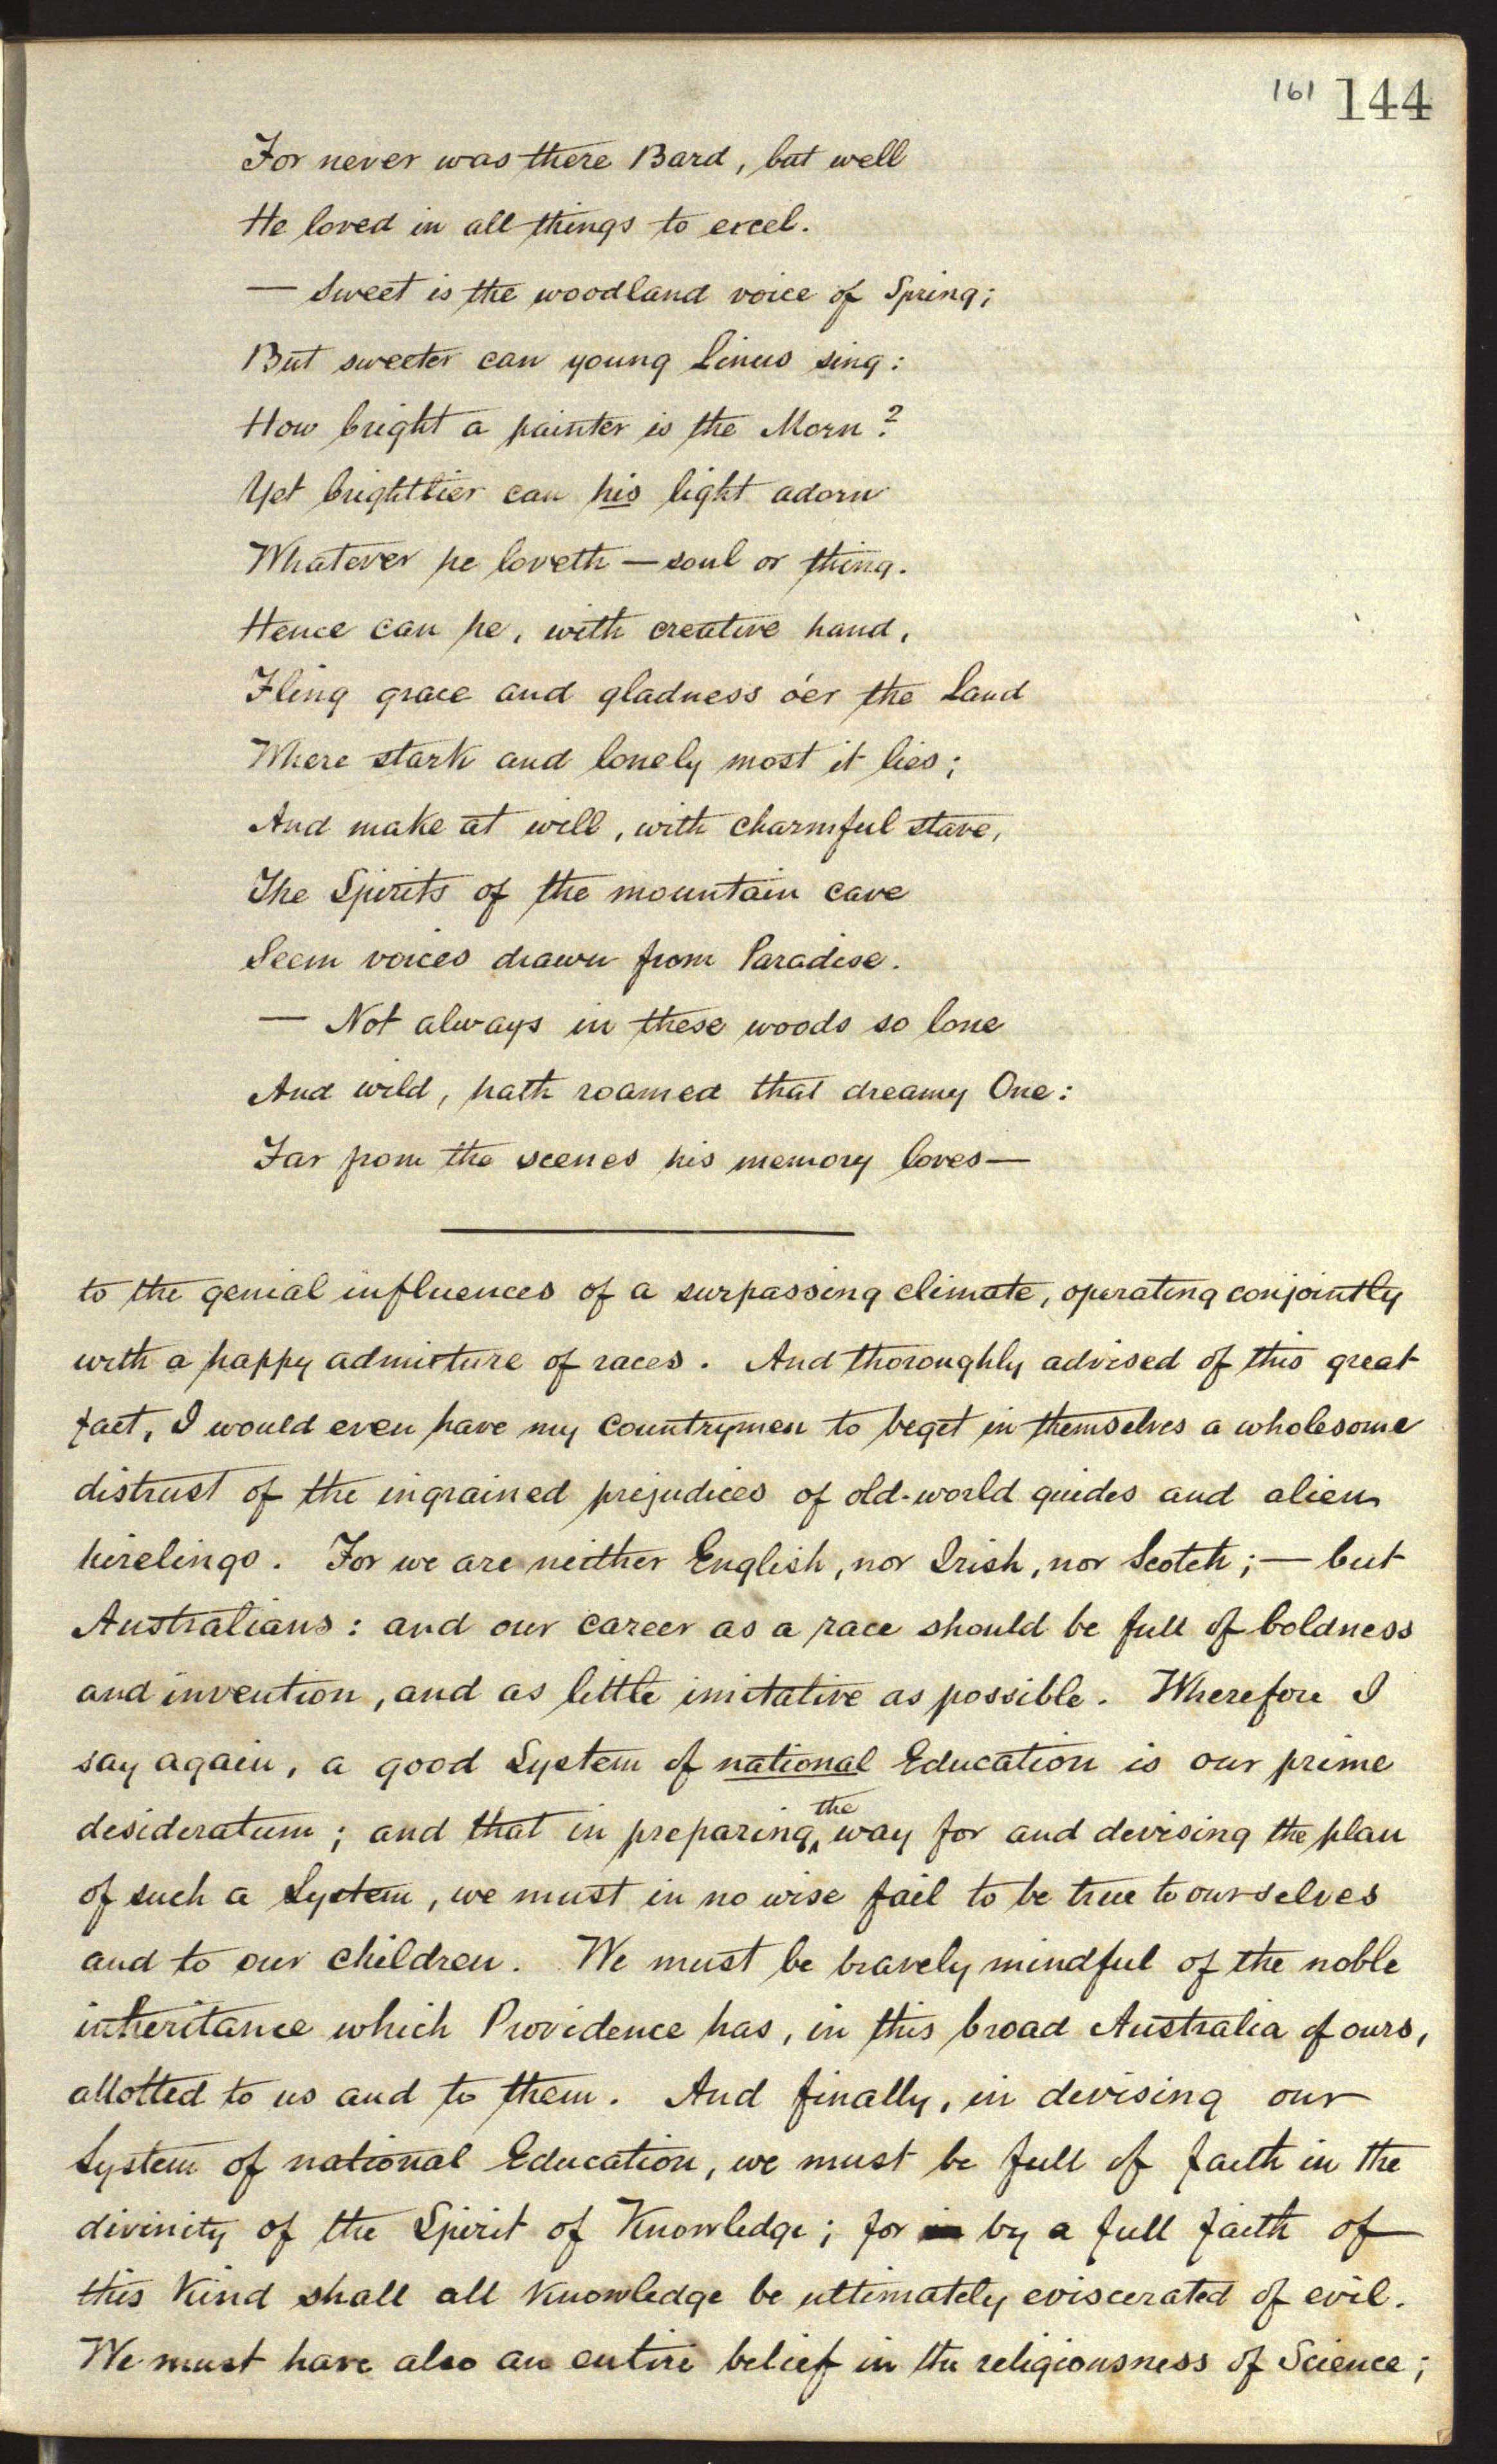 161 144
For never was there Bard, but well
He loved in all things to excel.
— Sweet is the woodland voice of Spring;
But sweeter can young Linus sing:
How bright a painter is the Morn?
Yet brightlier can his light adorn
Whatever he loveth — soul or thing.
Hence can he, with creative hand,
Fling grace and gladness o'er the Land
Where stark and lonely most it lies;
And make at will, with charmful stave,
The Spirits of the mountain cave
Seem voices drawn from Paradise.
— Not always in these woods so lone
And wild, hath roamed that dreamy One:
Far from the scenes his memory loves—
to the genial influences of a surpassing climate, operating conjointly
with a happy admixture of races. And thoroughly advised of this great
fact, I would even have my Countrymen to beget in themselves a wholesome
distrust of the ingrained prejudices of old-world guides and alien
hirelings. For we are neither English, nor Irish, nor Scotch; — but
Australians: and our career as a race should be full of boldness
and invention, and as little imitative as possible. Wherefore I
say again, a good System of national Education is our prime
desideratum; and that in preparing the way for and devising the plan
of such a System, we must in no wise fail to be true to ourselves
and to our children. We must be bravely mindful of the noble
inheritance which Providence has, in this broad Australia of ours,
allotted to us and to them. And finally, in devising our
System of national Education, we must be full of faith in the
divinity of the Spirit of Knowledge; for by a full faith of
this kind shall all knowledge be ultimately eviscerated of evil.
We must have also an entire belief in the religiousness of Science;